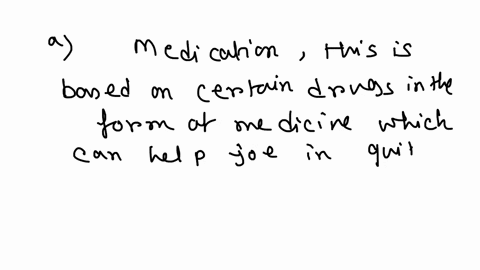 a) Medication, this is
based on certain drugs in the
form of medicine which
can help joe in quit